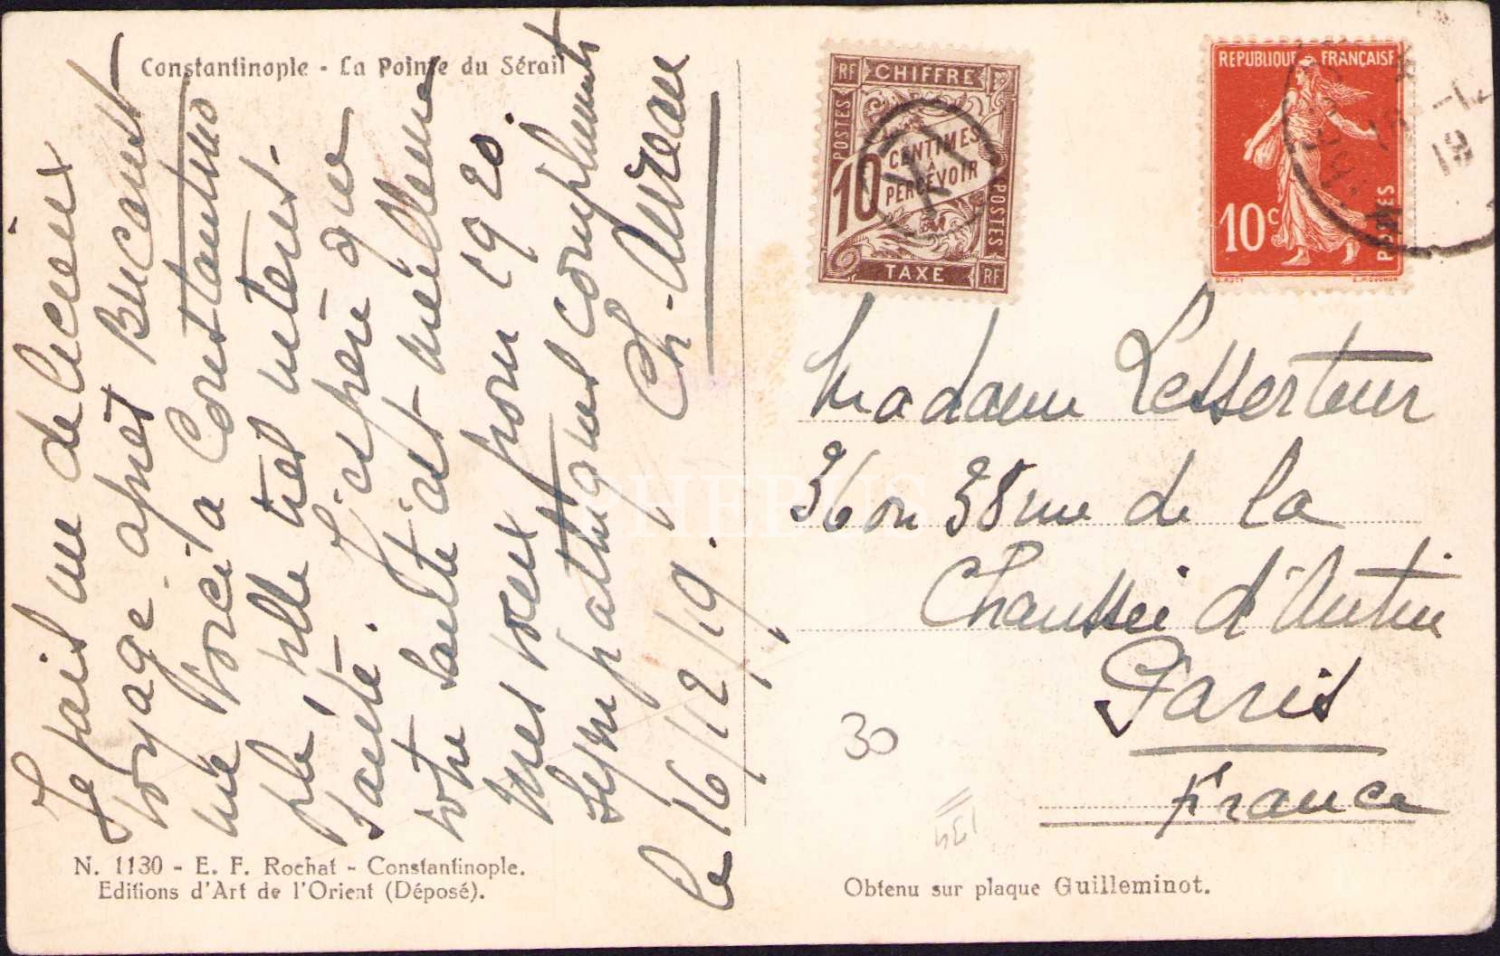 Constantinople - La Pointe du Sérail
Je fais un delicieux
voyage. après Bucarest
me voici à Constantino
ple, ville très intéres-
sante. J'espère que
votre santé est meilleure
mes vœux pour 1920.
Sympathiques compliments
Ch-
le 16/12/19.
N. 1130 - E. F. Rochat - Constantinople.
Editions d'Art de l'Orient (Déposé).
RF CHIFFRE
POSTES
10 CENTIMES
A
PERCEVOIR
POSTES
TAXE RF
REPUBLIQUE FRANÇAISE
10c
POSTES
Madame Lesserteur
36 ou 38 rue de la
Chaussée d'Antin
Paris
France
30
134
Obtenu sur plaque Guilleminot.
PHEBUS